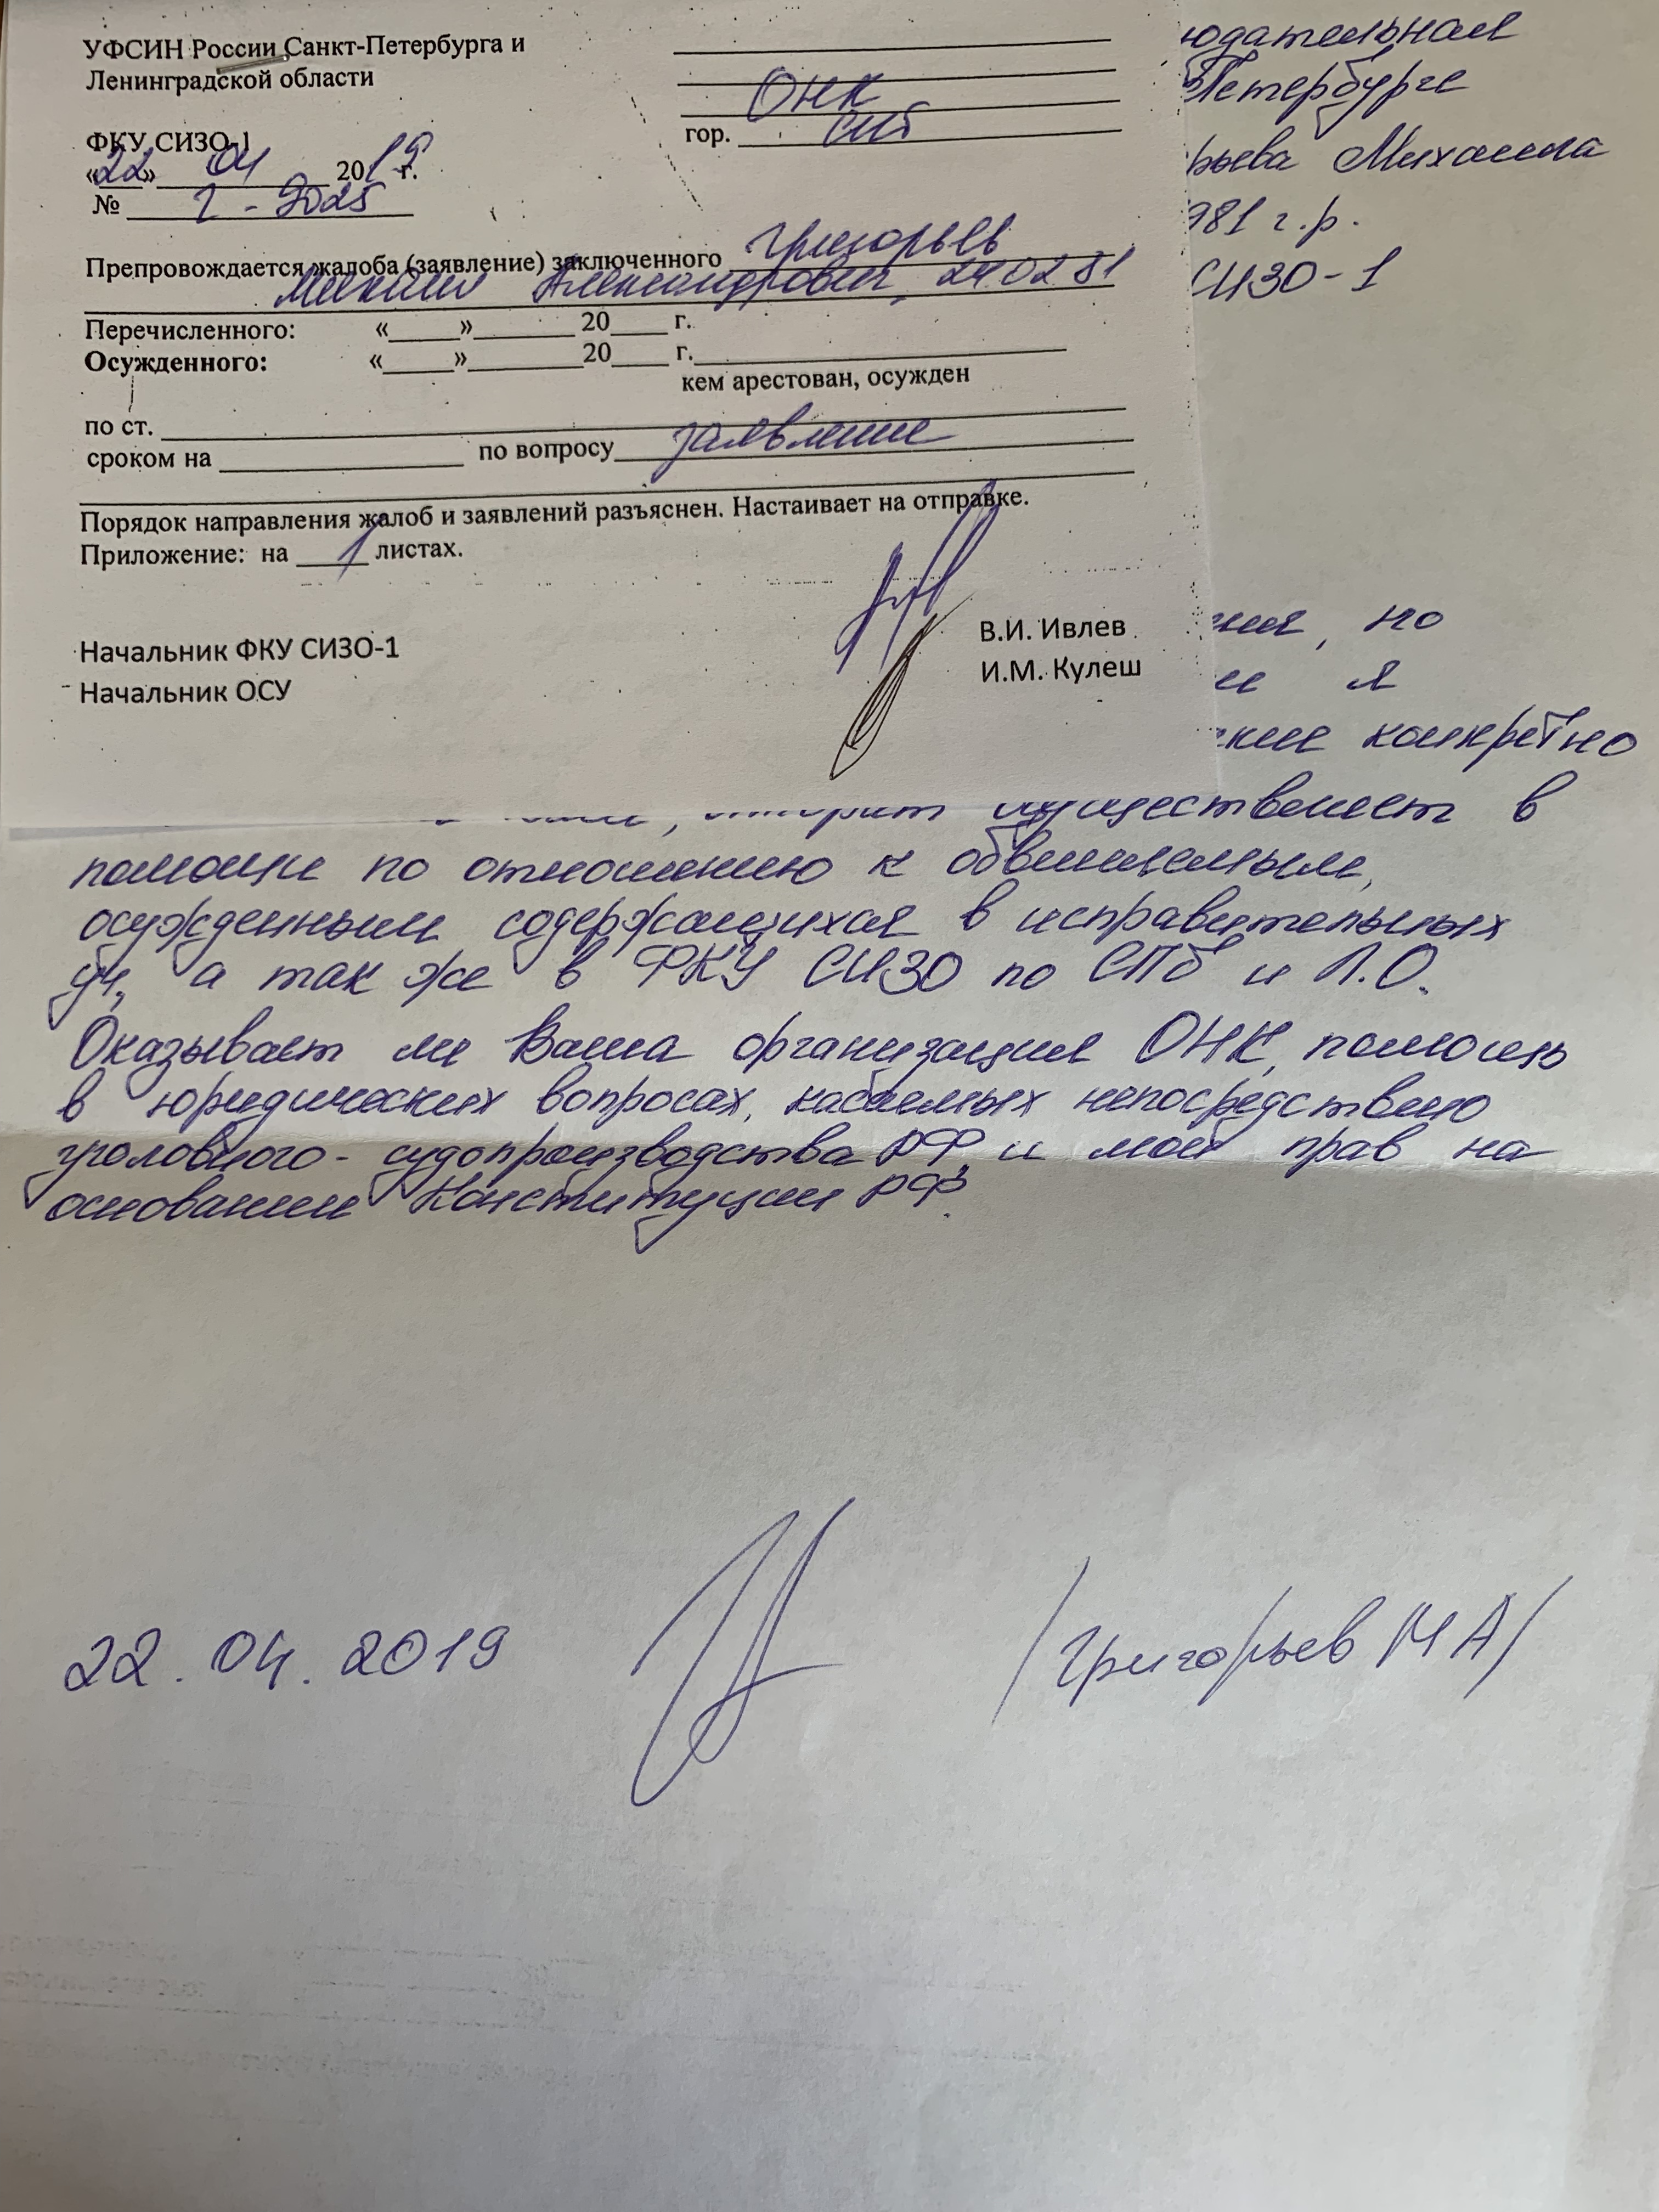 УФСИН России Санкт-Петербурга и
Ленинградской области
ФКУ СИЗО-1
«22» 04 2019 г.
№ 2025
ОНК
гор. СПб
Препровождается жалоба (заявление) заключенного Григорьев
Михаил Александрович, 24.02.81
Перечисленного: «____»________20____ г.
Осужденного: «____»________20____ г.
кем арестован, осужден
по ст.
сроком на по вопросу заявление
Порядок направления жалоб и заявлений разъяснен. Настаивает на отправке.
Приложение: на 1 листах.
Начальник ФКУ СИЗО-1 В.И. Ивлев
Начальник ОСУ И.М. Кулеш
юдательная
Петербурге
рьева Михаила
981 г.р.
СИЗО-1
ния, но
ее я
кие конкретно
осуществляет в
помощи по отношению к обвиняемым,
осужденным содержащихся в исправительных
уч, а так же в ФКУ СИЗО по СПб и Л.О.
Оказывает ли Ваша организация ОНК, помощь
в юридических вопросах, касаемых непосредствено
уголовного-судопроизводства РФ, и моей прав на
основании Конституции РФ.
22.04.2019 /Григорьев М А/